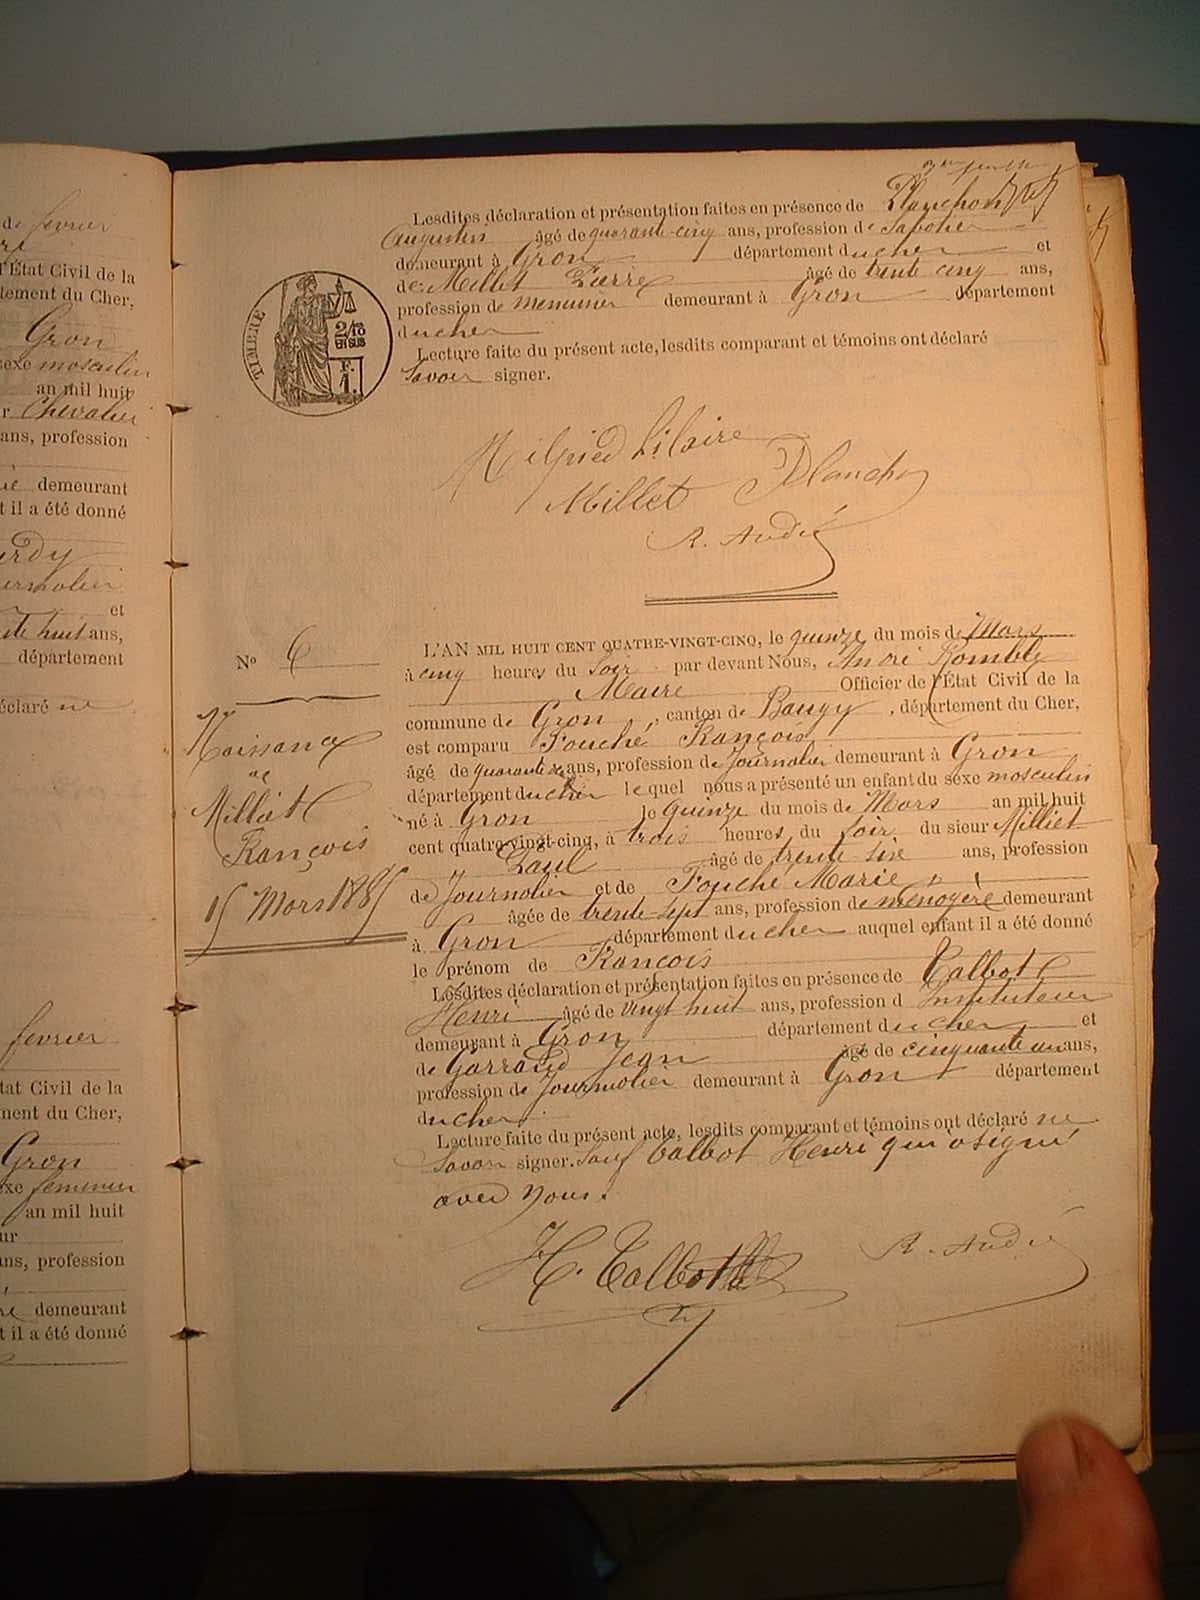 de fevrier
l'État Civil de la
tement du Cher,
Gron
sexe masculin
an mil huit
r Chevalier
ans, profession
demeurant
t il a été donné
et
huit ans,
département
éclaré ne
fevrier
tat Civil de la
ment du Cher,
Gron
exe feminin
an mil huit
ur
ans, profession
demeurant
t il a été donné
Lesdites déclaration et présentation faites en présence de Planchon
Augustin âgé de quarante-cinq ans, profession de Sabotier
demeurant à Gron département du cher et
de Millet Pierre âgé de trente cinq ans,
profession de menusier demeurant à Gron département
du cher
Lecture faite du présent acte, lesdits comparant et témoins ont déclaré
Savoir signer.
TIMBRE
2/10
EN SUS
F.
1.
Milpied hilaire
Millet Planchon
R. André
No 6
Naissance
de
Milliet
François
15 Mars 1885
L'AN MIL HUIT CENT QUATRE-VINGT-CINQ, le quinze du mois de Mars
à cinq heures du Soir par devant Nous, André Romble
Maire Officier de l'État Civil de la
commune de Gron, canton de Baugy, département du Cher,
est comparu Fouché François
âgé de quarante ans, profession de Journalier demeurant à Gron
département du cher lequel nous a présenté un enfant du sexe masculin
né à Gron le quinze du mois de Mars an mil huit
cent quatre-vingt-cinq, à trois heures du Soir du sieur Milliet
Paul âgé de trente six ans, profession
de Journalier et de Fouché Marie
âgée de trente-sept ans, profession de menagère demeurant
à Gron département du cher auquel enfant il a été donné
le prénom de François
Lesdites déclaration et présentation faites en présence de Talbot
Henri âgé de vingt huit ans, profession d Instituteur
demeurant à Gron département du cher et
de Garraud Jean âgé de cinquante un ans,
profession de Journalier demeurant à Gron département
du cher
Lecture faite du présent acte, lesdits comparant et témoins ont déclaré ne
Savoir signer. Sauf Talbot Henri qui a signé
avec Nous.
H. Talbot
R. André